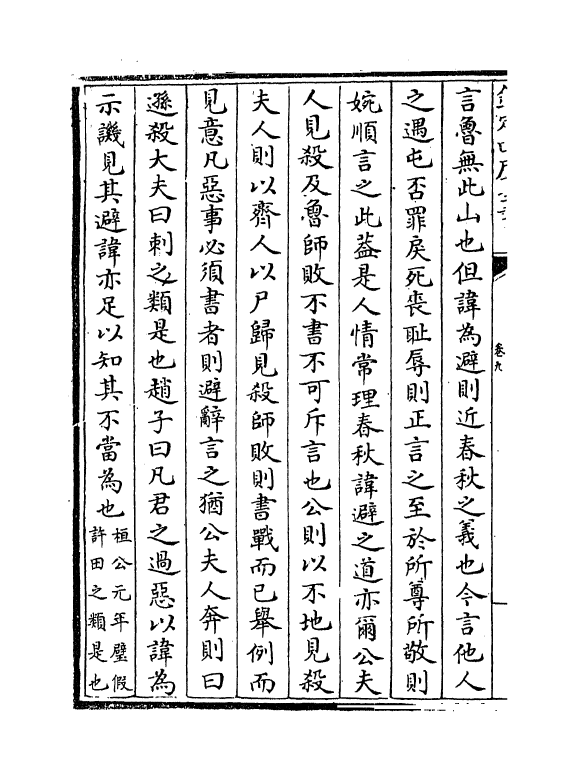 言魯無此山也但諱為避則近春秋之義也今言他人
之遇屯否罪戾死喪恥辱則正言之至於所尊所敬則
婉順言之此蓋是人情常理春秋諱避之道亦爾公夫
人見殺及魯師敗不書不可斥言也公則以不地見殺
夫人則以齊人以尸歸見殺師敗則書戰而已舉例而
見意凡惡事必須書者則避辭言之猶公夫人奔則曰
遜殺大夫曰刺之類是也趙子曰凡君之過惡以諱為
示譏見其避諱亦足以知其不當為也桓公元年璧假
許田之類是也
卷九